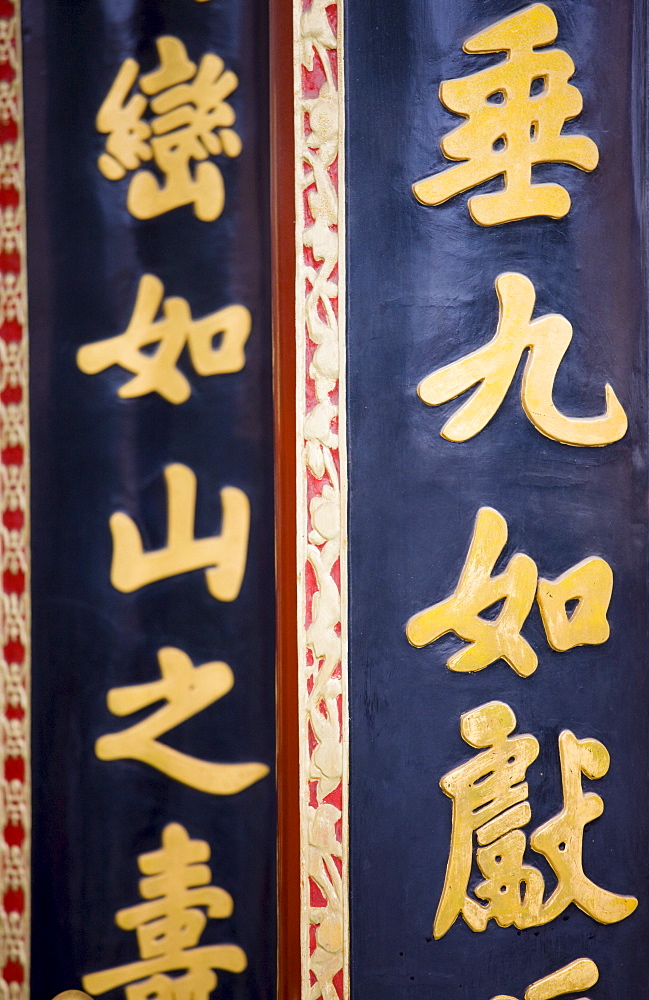 垂九如獻
巒如山之壽